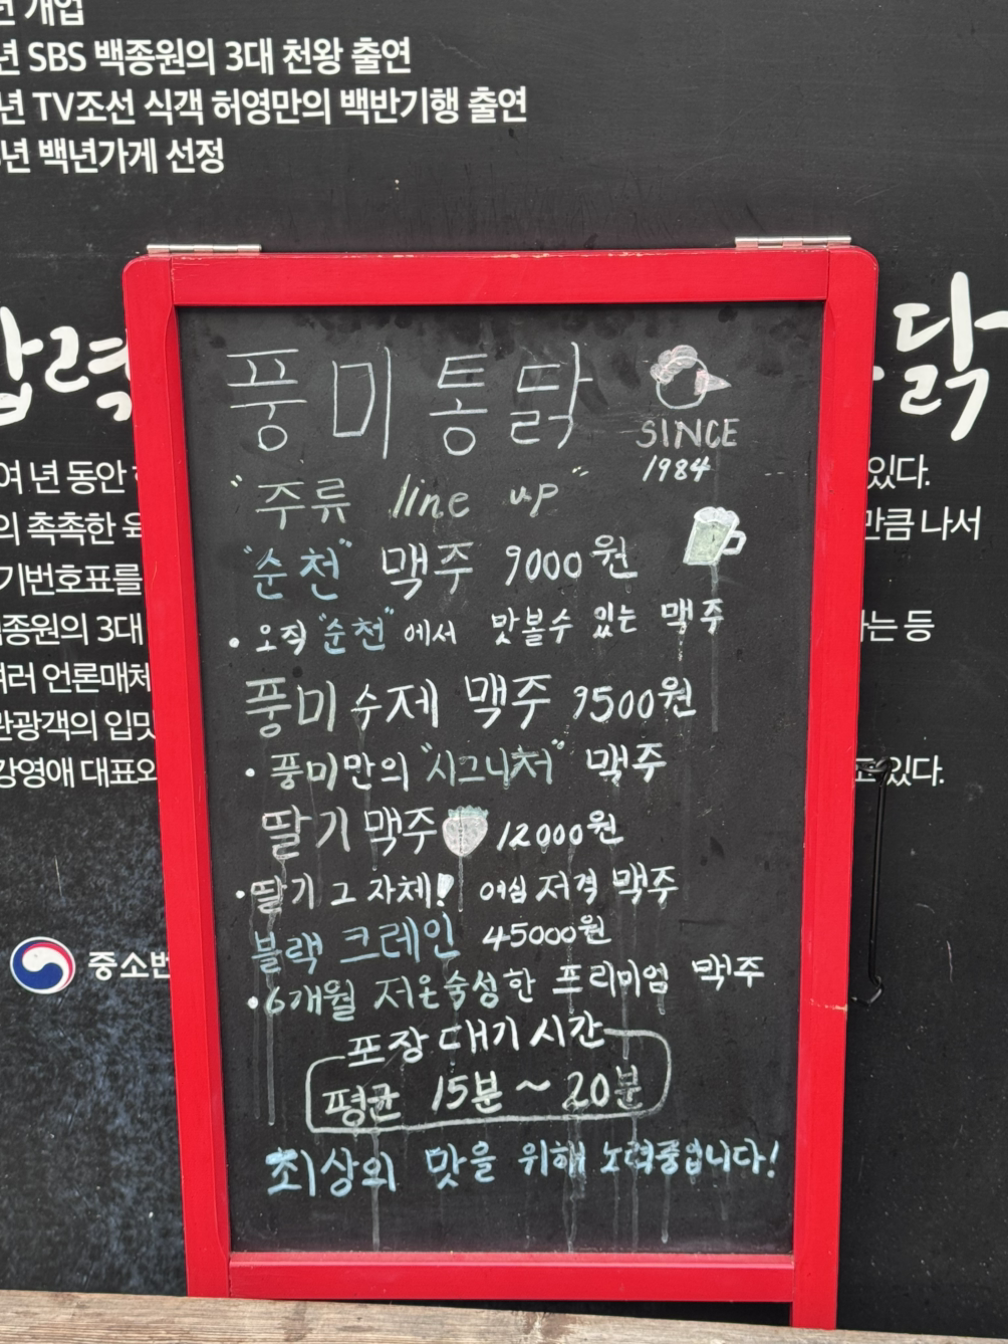 년 개업
년 SBS 백종원의 3대 천왕 출연
년 TV조선 식객 허영만의 백반기행 출연
년 백년가게 선정
압력
닭
풍미통닭
SINCE
1984
"주류 line up"
"순천" 맥주 9000원
• 오직 "순천"에서 맛볼수 있는 맥주
풍미 수제 맥주 9500원
• 풍미만의 "시그니처" 맥주
딸기 맥주 12000원
• 딸기 그 자체! 여심 저격 맥주
블랙 크레인 45000원
• 6개월 저온숙성한 프리미엄 맥주
포장 대기 시간
평균 15분 ~ 20분
최상의 맛을 위해 노력중입니다!
여 년 동안
있다.
의 촉촉한
만큼 나서
기번호표를
종원의 3대
하는 등
여러 언론매체
관광객의 입맛
강영애 대표와
고 있다.
중소벤